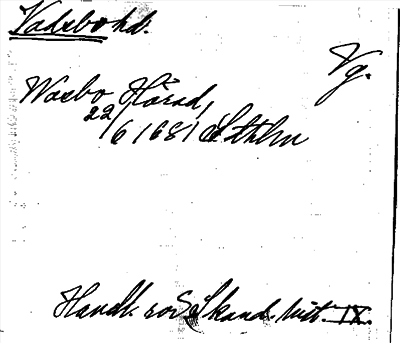 Vadsbo hd.
Vg.
Waxbo Härad,
22/6 1681 Sthlm
Handl. rör Skand. hist. IX.